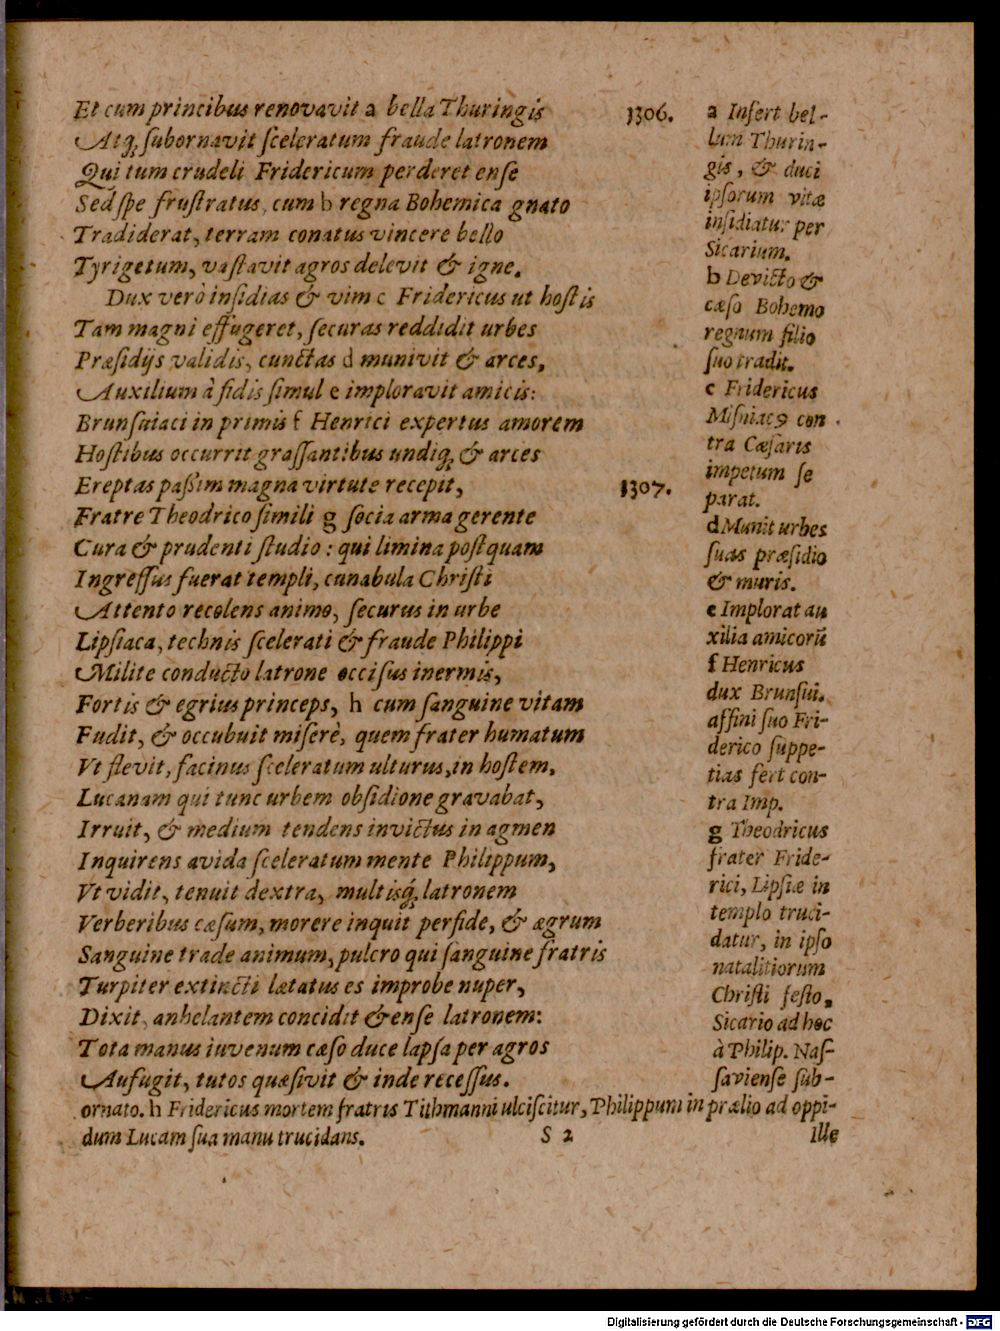 Et cum principibus renovavit a bella Thuringis
Atq́ꝫ subornavit sceleratum fraude latronem
Qui tum crudeli Fridericum perderet ense
Sed spe frustratus, cum b regna Bohemica gnato
Tradiderat, terram conatus vincere bello
Tyrigetum, vastavit agros delevit & igne.
Dux verò insidias & vim c Fridericus ut hostis
Tam magni effugeret, securas reddidit urbes
Præsidijs validis, cunctas d munivit & arces,
Auxilium à fidis simul e imploravit amicis:
Brunsuiaci in primis f Henrici expertus amorem
Hostibus occurrit grassantibus undiq́ꝫ & arces
Ereptas paßim magna virtute recepit,
Fratre Theodrico simili g socia arma gerente
Cura & prudenti studio: qui limina postquam
Ingressus fuerat templi, cunabula Christi
Attento recolens animo, securus in urbe
Lipsiaca, technis scelerati & fraude Philippi
Milite conducto latrone occisus inermis,
Fortis & egrius princeps, h cum sanguine vitam
Fudit, & occubuit miserè, quem frater humatum
Vt flevit, facinus sceleratum ulturus, in hostem,
Lucanam qui tunc urbem obsidione gravabat,
Irruit, & medium tendens invictus in agmen
Inquirens avida sceleratum mente Philippum,
Vt vidit, tenuit dextra, multisq́ꝫ latronem
Verberibus cæsum, morere inquit perfide, & ægrum
Sanguine trade animum, pulcro qui sanguine fratris
Turpiter extincti lætatus es improbe nuper,
Dixit, anhelantem concidit & ense latronem:
Tota manus iuvenum cæso duce lapsa per agros
Aufugit, tutos quæsivit & inde recessus.
1306.
1307.
a Infert bel-
lum Thurin-
gis, & duci
ipsorum vitæ
insidiatur per
Sicarium.
b Devicto &
cæso Bohemo
regnum filio
suo tradit.
c Fridericus
Misniacꝰ con
tra Cæsaris
impetum se
parat.
d Munit urbes
suas præsidio
& muris.
e Implorat au
xilia amicorū
f Henricus
dux Brunsui.
affini suo Fri-
derico suppe-
tias fert con-
tra Imp.
g Theodricus
frater Fride-
rici, Lipsiæ in
templo truci-
datur, in ipso
natalitiorum
Christi festo,
Sicario ad hoc
à Philip. Nas-
saviense sub-
ornato. h Fridericus mortem fratris Tithmanni ulciscitur, Philippum in prælio ad oppi-
dum Lucam sua manu trucidans.
S 2
Ille
Digitalisierung gefördert durch die Deutsche Forschungsgemeinschaft - DFG